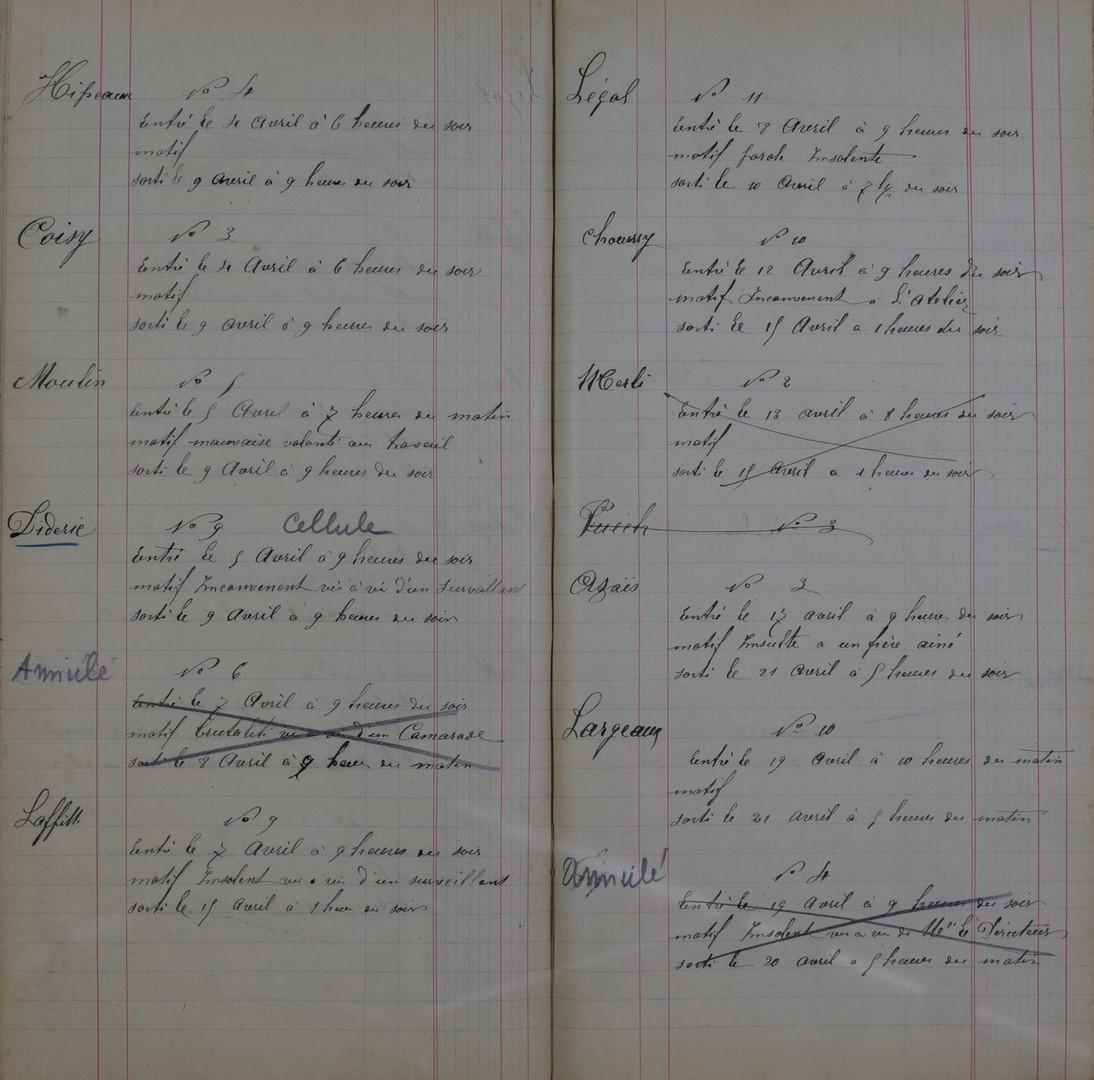 Hipeaux No 4
Entré le 4 Avril à 6 heures du soir
motif
sorti le 9 Avril à 9 heures du soir
Coisy No 3
Entré le 4 Avril à 6 heures du soir
motif
sorti le 9 avril à 9 heures du soir
Moulin No 5
Entré le 5 Avril à 7 heures du matin
motif mauvaise volonté au travail
sorti le 9 Avril à 9 heures du soir
Diderie No 9 Cellule
Entré le 5 Avril à 9 heures du soir
motif Inconvenent vis à vi d'un surveillant
sorti le 9 Avril à 9 heures du soir
Annulé No 6
Entré le 7 Avril à 9 heures du soir
motif brutalité vis a vi d'un Camarade
sorti le 8 Avril à 9 heures du matin
Laffitte No 9
Entré le 7 Avril à 9 heures du soir
motif Insolent vis a vis d'un surveillant
sorti le 15 Avril à 1 heure du soir
Légal No 11
Entré le 8 Avril à 9 heures du soir
motif parole Insolente
sorti le 10 Avril à 7 h du soir
Choussy No 10
Entré le 12 Avril à 9 heures du soir
motif Inconvenent a L'atelier
sorti le 15 Avril a 1 heures du soir
Merli No 2
Entré le 13 avril à 8 heures du soir
motif
sorti le 15 Avril a 1 heures du soir
Puich No 3
Azaïs No 3
Entré le 17 avril à 9 heures du soir
motif Insulte a un frère ainé
sorti le 21 Avril à 5 heures du soir
Largeaux No 10
Entré le 19 Avril à 10 heures du matin
motif
sorti le 21 avril à 5 heures du matin
Annulé No 4
Entré le 19 Avril à 9 heures du soir
motif Insolent vis a vis de Mr le Directeur
sorti le 20 avril a 5 heures du matin